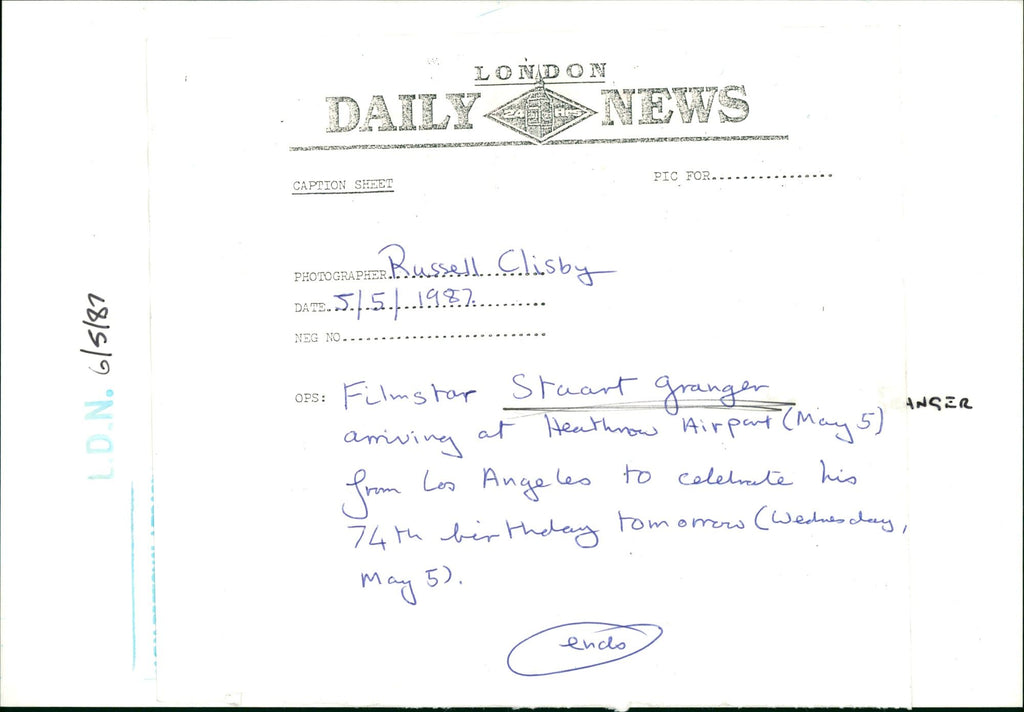 LONDON
DAILY NEWS
CAPTION SHEET
PIC FOR................
PHOTOGRAPHER Russell Clisby
DATE 5/5/1987
NEG NO..........................
OPS: Filmstar Stuart Granger
ANGER
arriving at Heathrow Airport (May 5)
from Los Angeles to celebrate his
74th birthday tomorrow (Wednesday,
May 5).
ends
L.D.N. 6/5/87